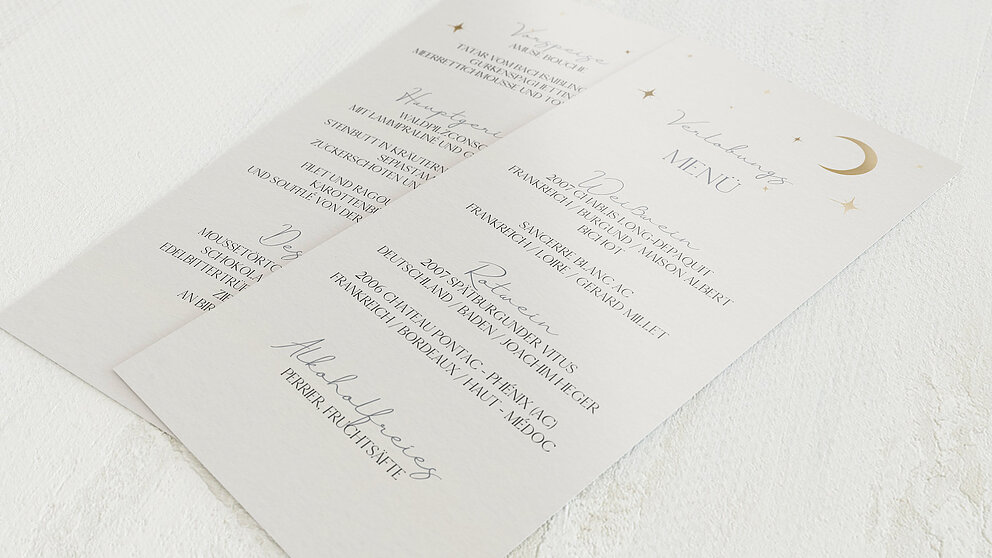 Vorspeise
AMUSE BOUCHE
TATAR VOM BACHSAIBLING
GURKENSPAGHETTIN
MEERRETTICHMOUSSE UND TO
Hauptgeri
WALDPILZCONSO
MIT LAMMPRALINÉ UND
STEINBUTT IN KRÄUTERN
SEPIASTAN
ZUCKERSCHOTEN UN
FILET UND RAGOU
KAROTTENB
UND SOUFFLÉ VON DER
Des
MOUSSETORTC
SCHOKOLA
EDELBITTERTRÜF
ZIE
AN BIR
Verlobungs
MENÜ
Weißwein
2007 CHABLIS LONG-DEPAQUIT
FRANKREICH / BURGUND / MAISON ALBERT
BICHOT
SANCERRE BLANC AC
FRANKREICH / LOIRE / GERARD MILLET
Rotwein
2007 SPÄTBURGUNDER VITUS
DEUTSCHLAND / BADEN / JOACHIM HEGER
2006 CHATEAU PONTAC - PHÉNIX (AC)
FRANKREICH / BORDEAUX / HAUT - MÉDOC
Alkoholfreies
PERRIER, FRUCHTSÄFTE